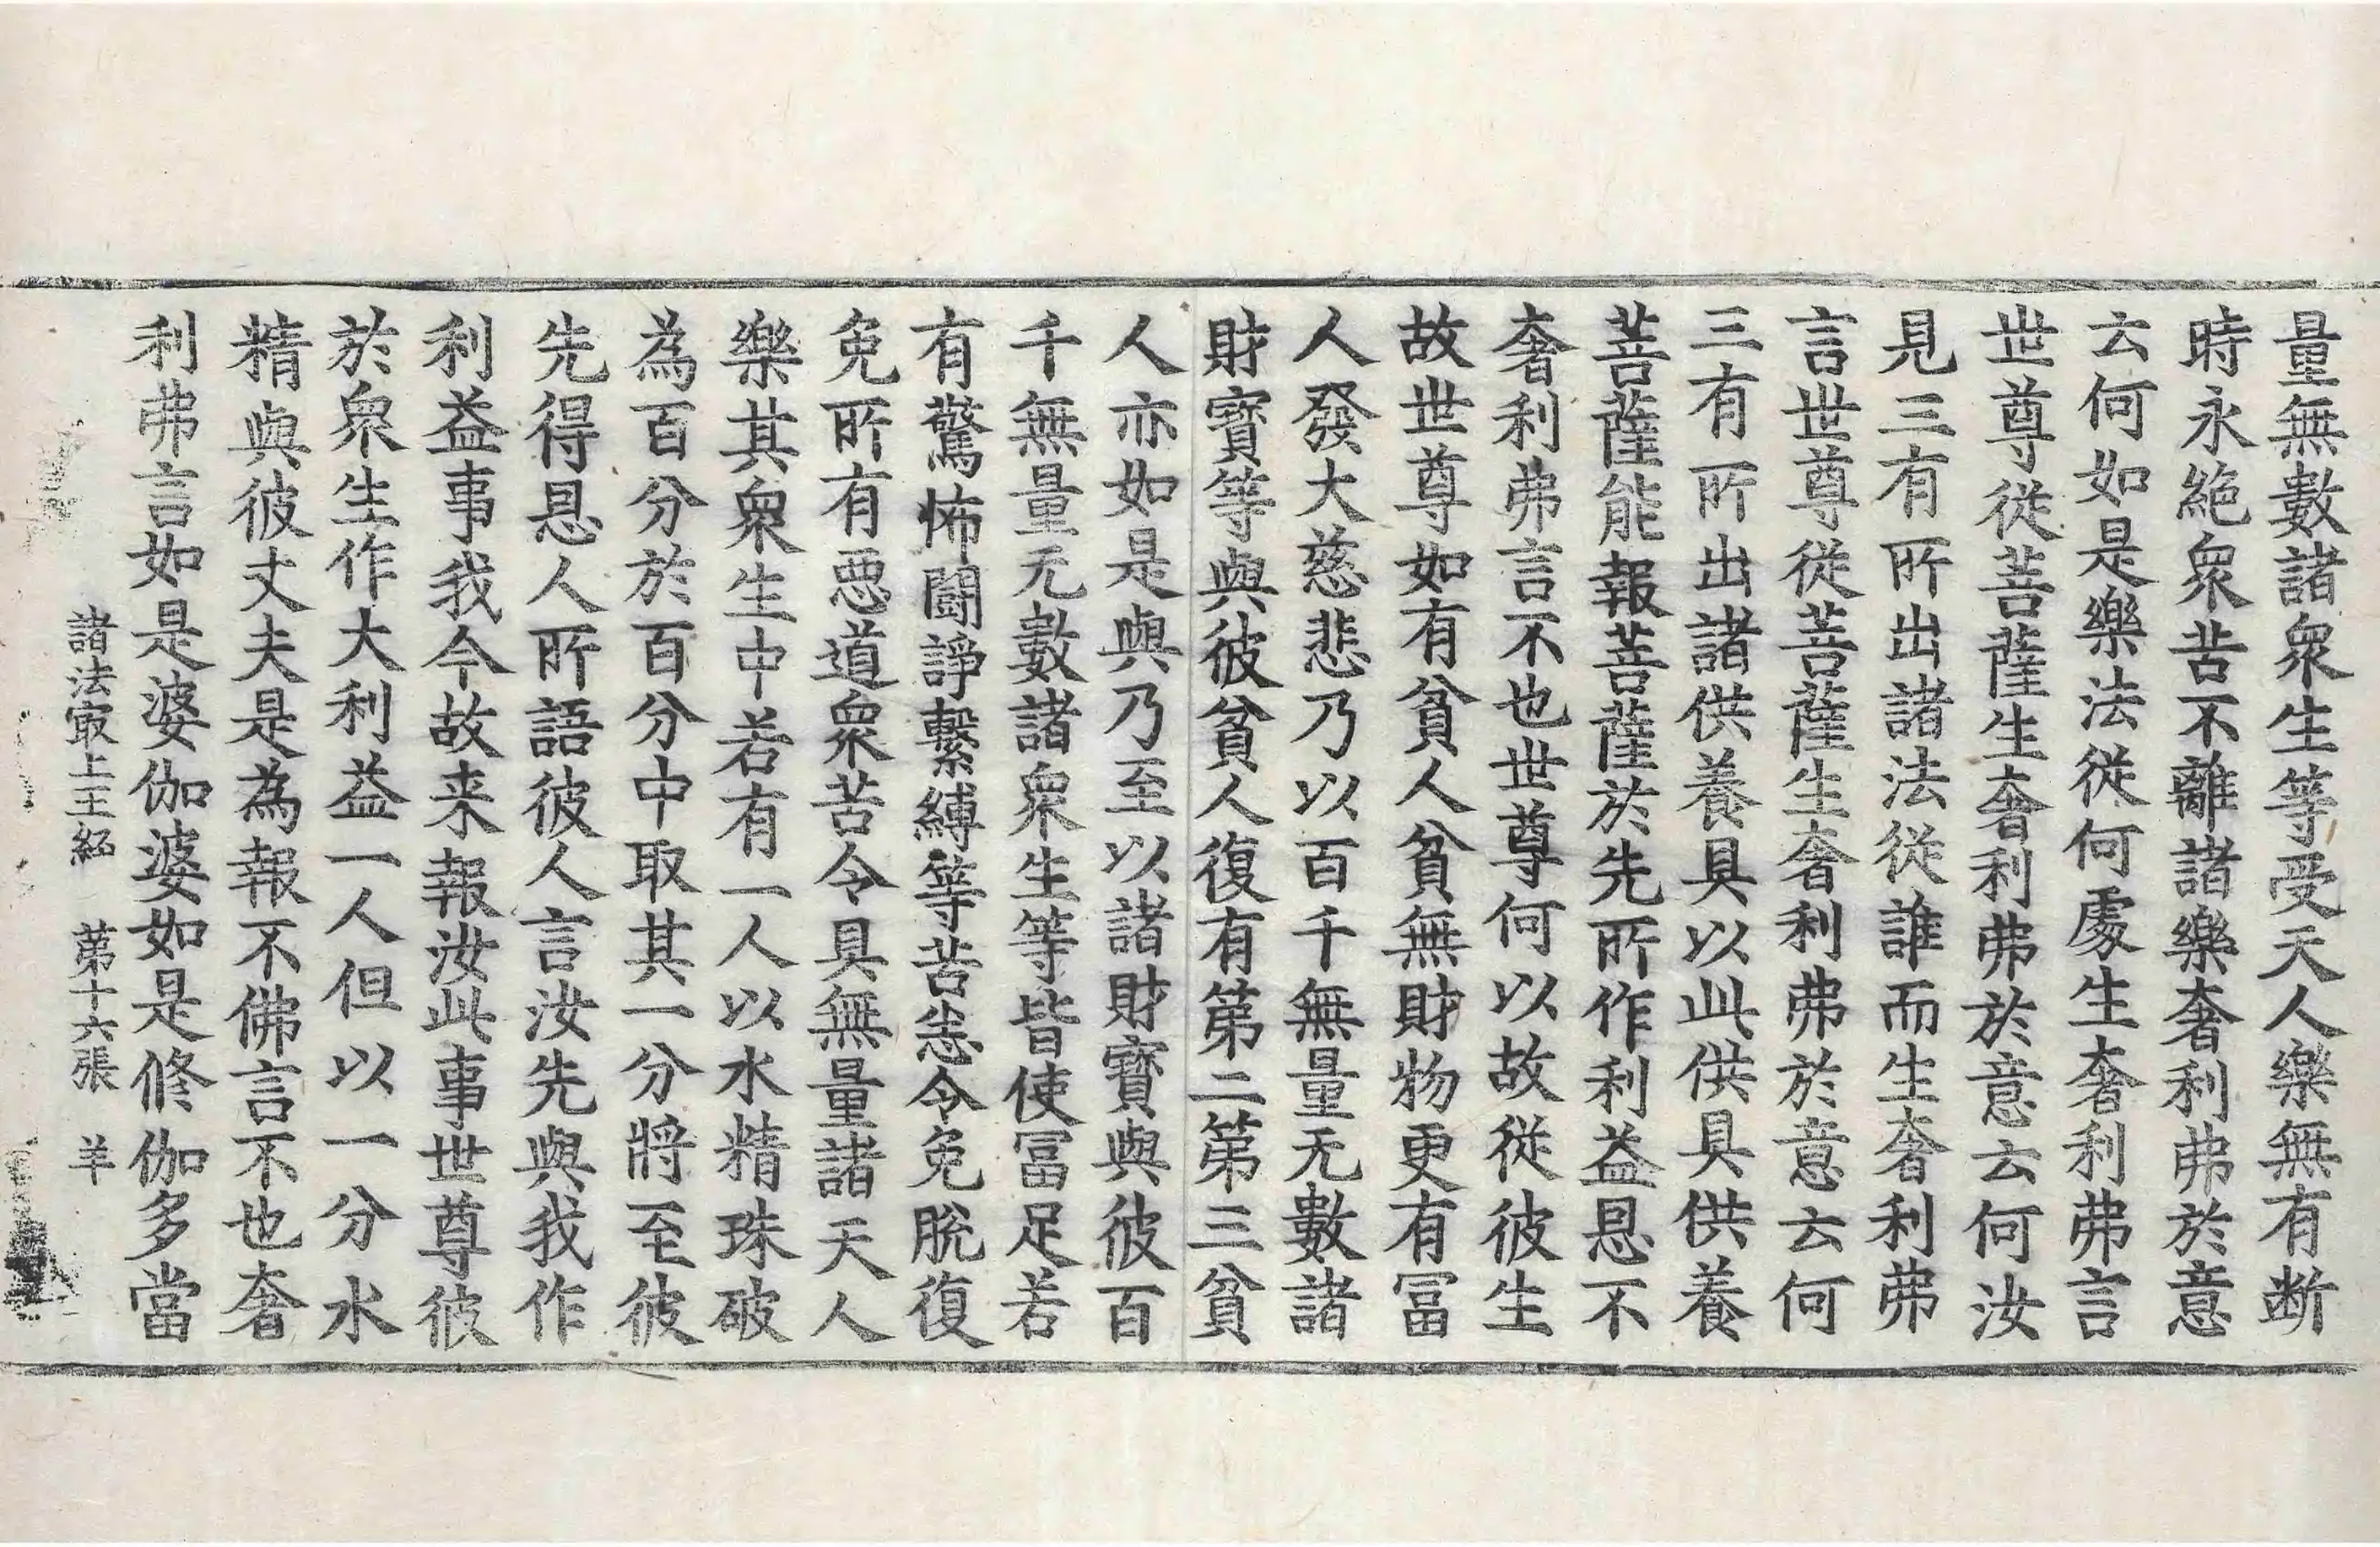 量無數諸衆生等受天人樂無有断
時永絕衆苦不離諸樂奢利弗於意
云何如是樂法從何處生奢利弗言
世尊從菩薩生奢利弗於意云何汝
見三有所出諸法從誰而生奢利弗
言世尊從菩薩生奢利弗於意云何
三有所出諸供養具以此供具供養
菩薩能報菩薩於先所作利益恩不
奢利弗言不也世尊何以故從彼生
故世尊如有貧人貧無財物更有冨
人發大慈悲乃以百千無量无數諸
財寶等與彼貧人復有第二第三貧
人亦如是與乃至以諸財寶與彼百
千無量无數諸衆生等皆使冨足若
有驚怖鬪諍繫縛等苦悉令免脫復
免所有惡道衆苦令具無量諸天人
樂其衆生中若有一人以水精珠破
為百分於百分中取其一分將至彼
先得恩人所語彼人言汝先與我作
利益事我今故来報汝此事世尊彼
於衆生作大利益一人但以一分水
精與彼丈夫是為報不佛言不也奢
利弗言如是婆伽婆如是修伽多當
諸法冣上王經　第十六張　羊